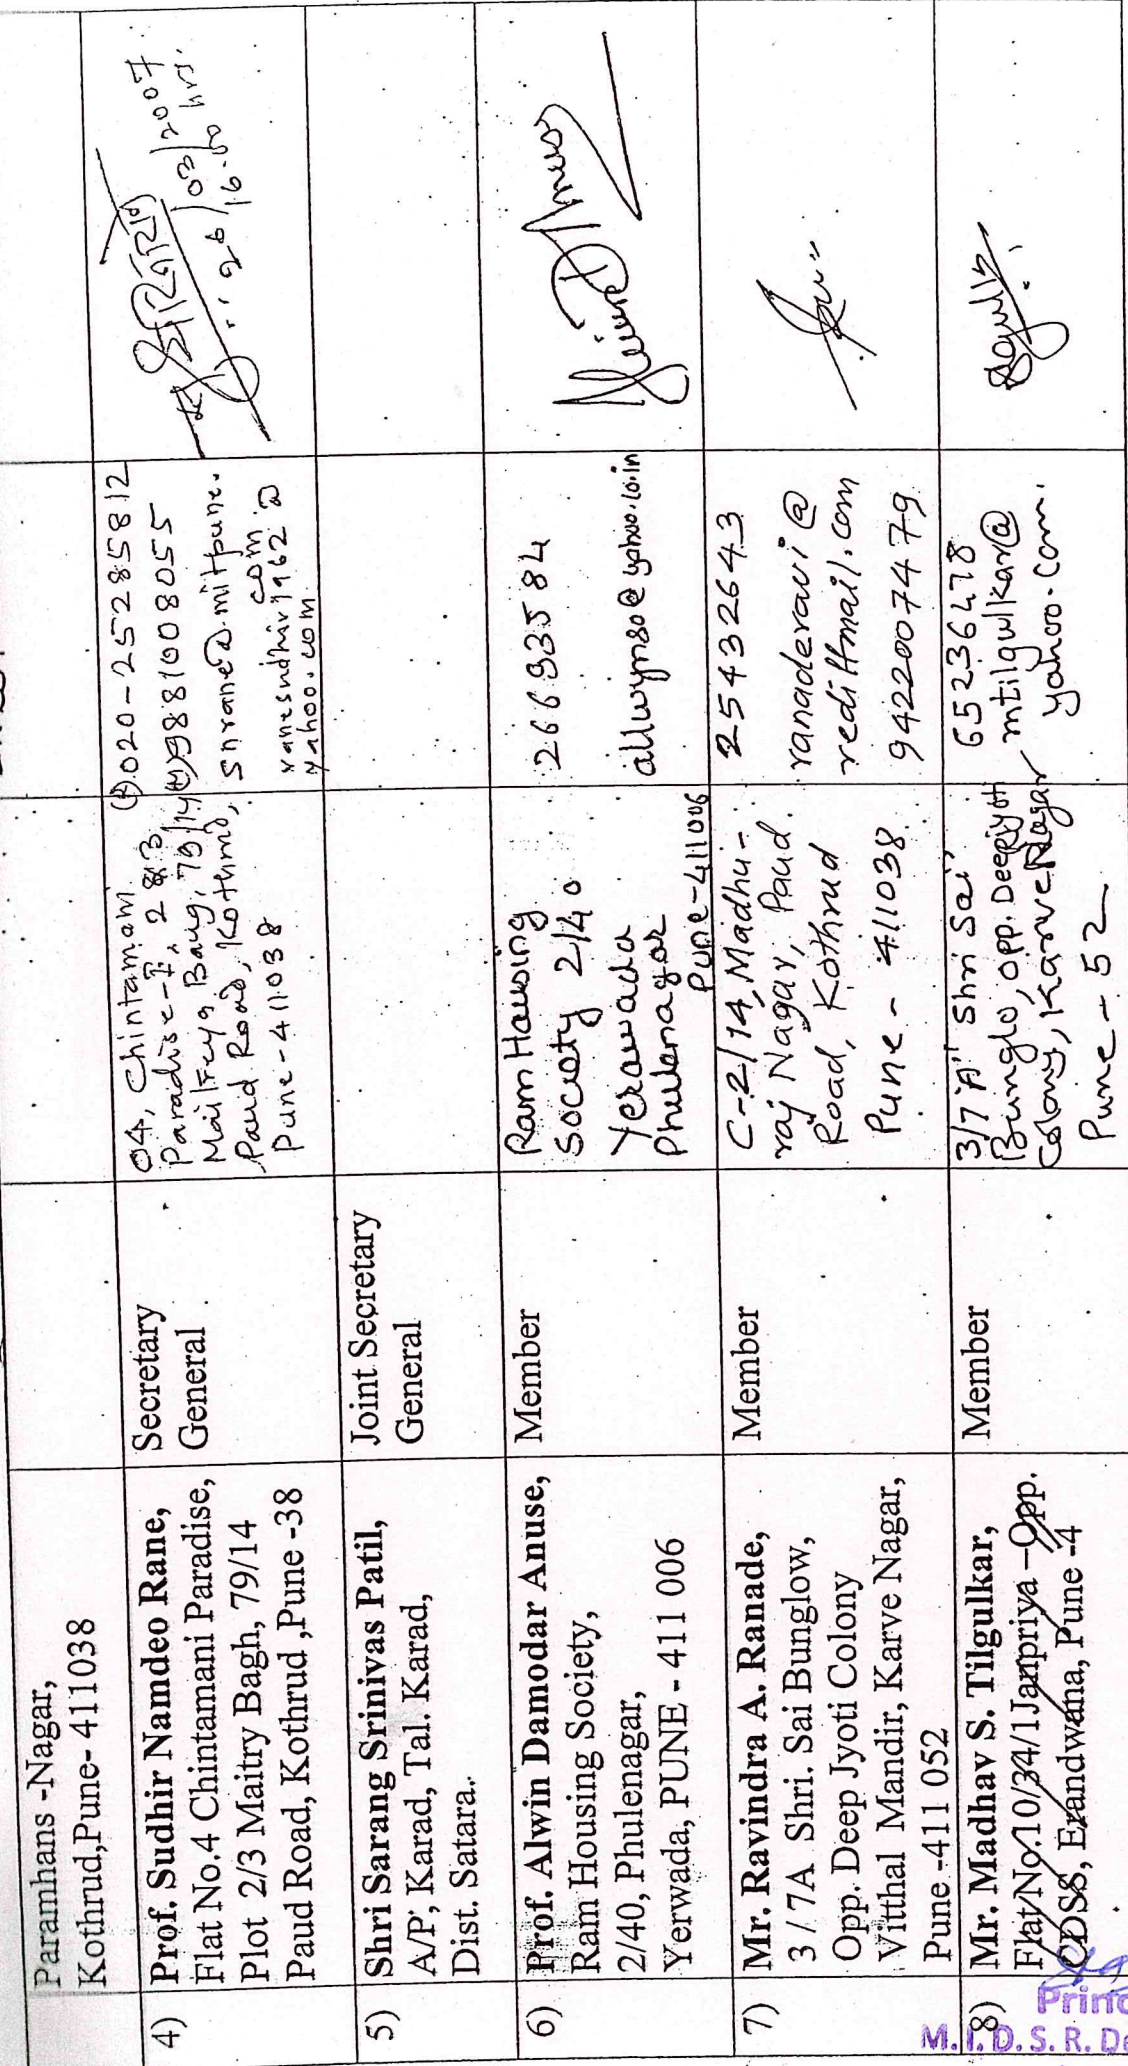 Paramhans -Nagar,
Kothrud,Pune- 411038
4)
Prof. Sudhir Namdeo Rane,
Flat No.4 Chintamani Paradise,
Plot 2/3 Maitry Bagh, 79/14
Paud Road, Kothrud ,Pune -38
Secretary
General
04, Chintamani
Paradise-I, 2&3
Maitreya Baug, 79/14
Paud Road, Kothrud,
Pune-411038
020-25285812
9881008055
snrane@mitpune.
com
ranesudhir1962@
yahoo.com
26/03/2007
16.00 hrs.
5)
Shri Sarang Srinivas Patil,
A/P, Karad, Tal. Karad,
Dist. Satara.
Joint Secretary
General
6)
Prof. Alwin Damodar Anuse,
Ram Housing Society,
2/40, Phulenagar,
Yerwada, PUNE - 411 006
Member
Ram Housing
Society 2/40
Yerawada
Phulenagar
Pune-411006
26693584
allwyn80@yahoo.co.in
7)
Mr. Ravindra A. Ranade,
3 / 7A Shri. Sai Bunglow,
Opp. Deep Jyoti Colony
Vitthal Mandir, Karve Nagar,
Pune -411 052
Member
C-2/14, Madhu-
raj Nagar, Paud
Road, Kothrud
Pune - 411038
25432643
ranaderavi@
rediffmail.com
9422007479
8)
Mr. Madhav S. Tilgulkar,
Flat No.10/34/1Janpriya -Opp.
CDSS, Erandwana, Pune -4
Member
3/7"A" Shri Sai,
Bunglo, opp. Deepjyoti
Colony, Karve Nagar
Pune - 52
65236478
mtilgulkar@
yahoo.com.
Princ
M. I. D. S. R. De